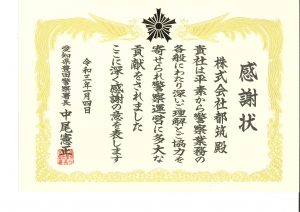 感謝状
株式会社都筑 殿
貴社は平素から警察業務の
各般にわたり深いご理解とご協力を
寄せられ警察運営に多大な
貢献をされました
ここに深く感謝の意を表します
令和三年一月四日
愛知県豊田警察署長 中尾憲正